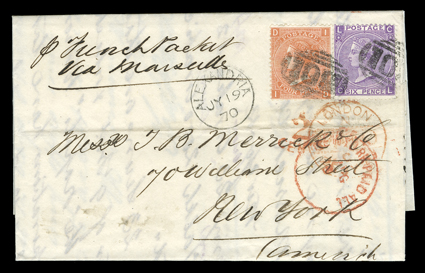 p French Packet
Via Marseille
D I
POSTAGE
L C
POSTAGE
SIX PENCE
C L
ALEXANDRIA
JY 19
70
LONDON
Messrs T. B. Merrick & Co
70 William Street
New York
(America